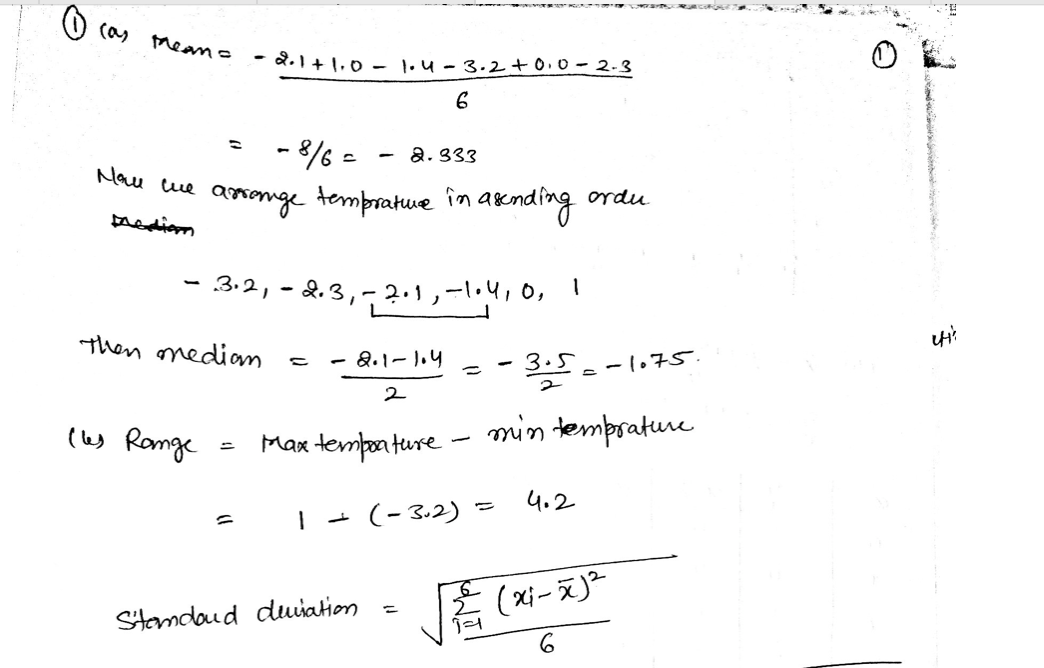 ① (a) Mean = - 2.1 + 1.0 - 1.4 - 3.2 + 0.0 - 2.3
6
①
= - 8/6 = - 2.333
Now we arrange temprature in asending order
Median
- 3.2, - 2.3, - 2.1, -1.4, 0, 1
Then median = - 2.1 - 1.4 / 2 = - 3.5 / 2 = - 1.75.
(b) Range = Max temprature - min temprature
= 1 - (-3.2) = 4.2
Standard deviation = √ 6 Σ i=1 (xi - x̄)² / 6